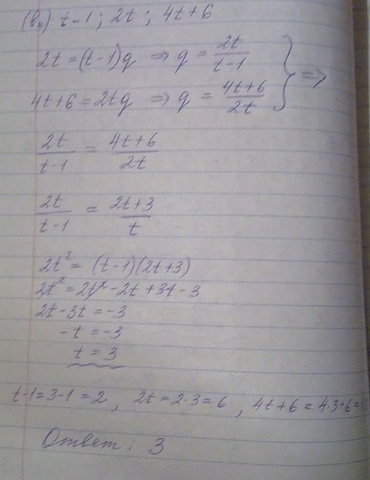 (bₙ) t-1 ; 2t ; 4t+6
2t=(t-1)q ⇒ q = 2t/(t-1)
4t+6=2tq ⇒ q = (4t+6)/2t } ⇒
2t/(t-1) = (4t+6)/2t
2t/(t-1) = (2t+3)/t
2t² = (t-1)(2t+3)
2t² = 2t² -2t +3t -3
2t-3t = -3
-t = -3
t = 3
t-1=3-1=2 , 2t=2·3=6 , 4t+6=4·3+6=
Ответ: 3